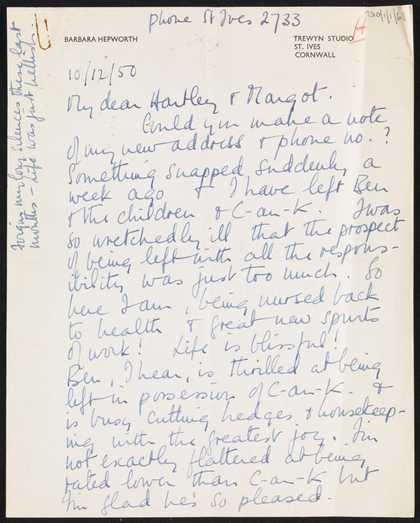 phone St Ives 2733
BARBARA HEPWORTH
TREWYN STUDIO
ST. IVES
CORNWALL
10/12/50
My dear Hartley & Margot.
Could you make a note
of my new address & phone no.?
Something snapped suddenly a
week ago & I have left Ben
& the children & C-an-K. I was
so wretchedly ill that the prospect
of being left with all the respons-
ibility was just too much. So
here I am, being nursed back
to health & great new spurts
of work! Life is blissful!
Ben, I hear, is thrilled at being
left in possession of C-an-K. &
is busy cutting hedges & housekeep-
ing with the greatest joy. I'm
not exactly flattered at being
rated lower than C-an-K but
I'm glad he's so pleased.
Forgive my long silences these last
months – Life was just hellish.